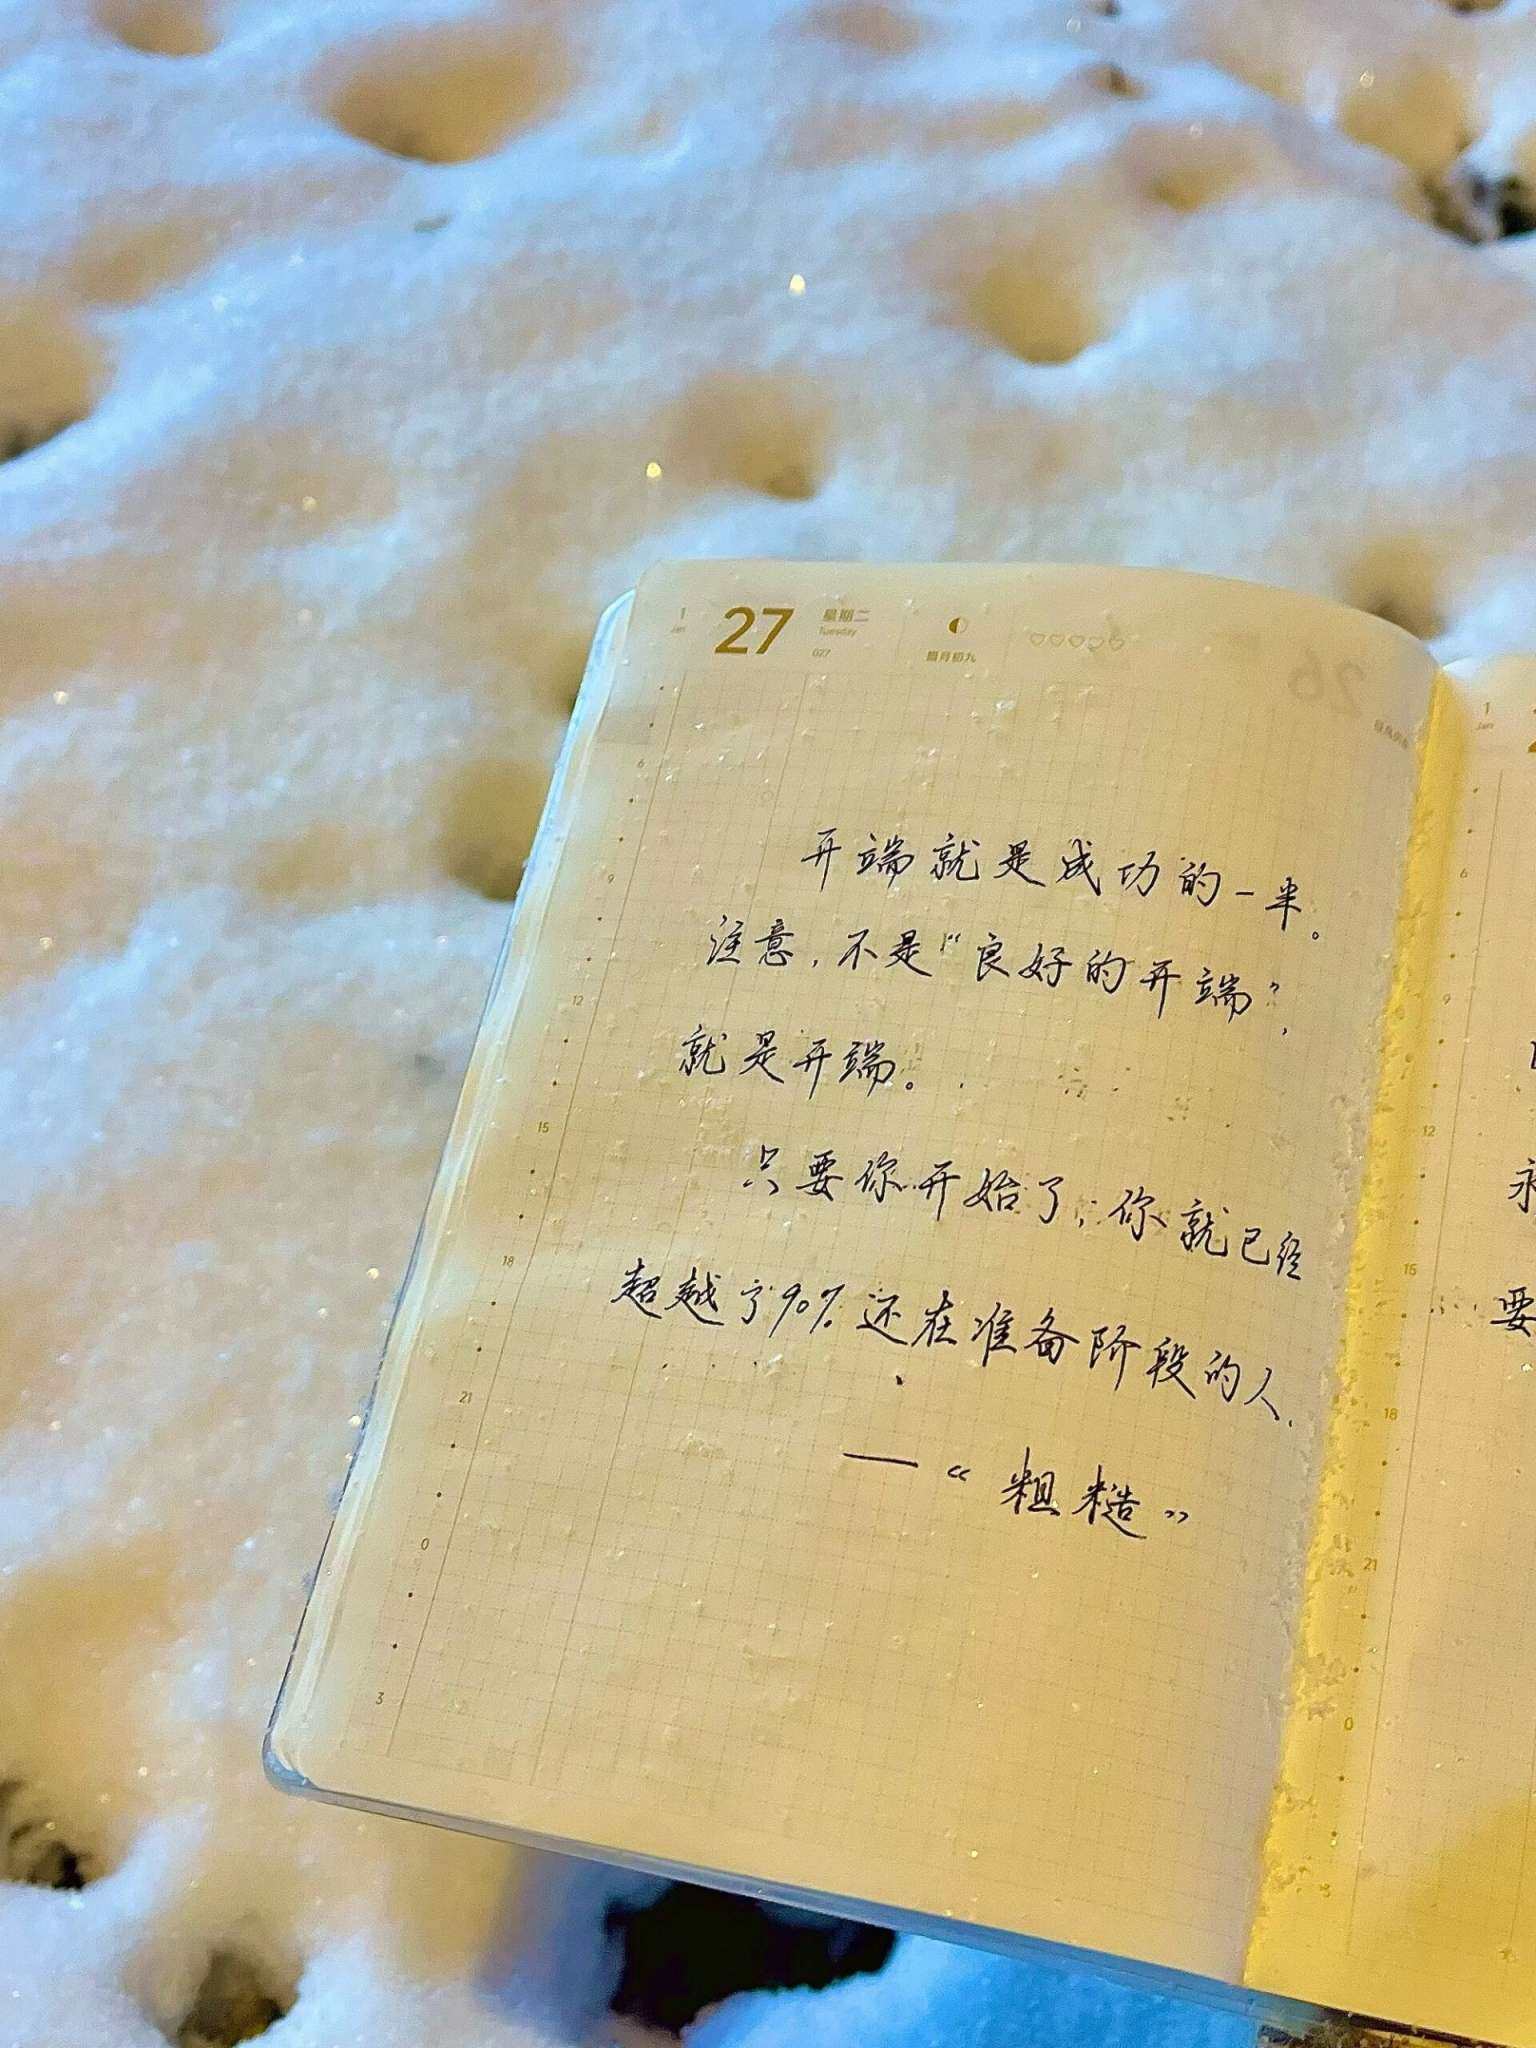 1
Jan
27
星期二
Tuesday
027
腊月初九
26
1
Jan
6
9
12
15
18
21
0
3
开端就是成功的一半。
注意,不是“良好的开端”,
就是开端。
只要你开始了,你就已经
超越了90%还在准备阶段的人.
—“粗糙”
6
9
12
15
18
21
0
永
要